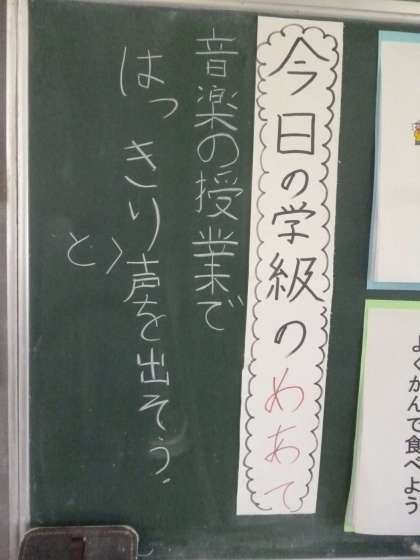 今日の学級のめあて
音楽の授業で
はっきり声を出そう。
と
よくかんで食べよう